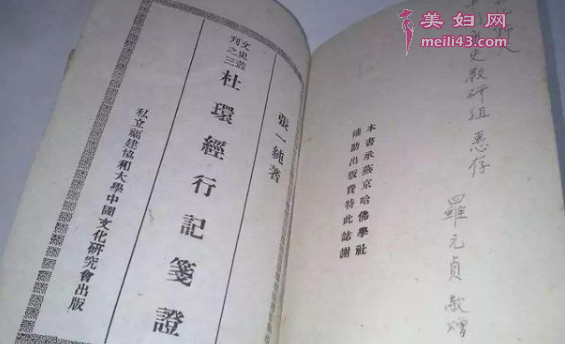 美妇网
meili43.com
史教研组 惠存
羅元貞 敬赠
本書承燕京哈佛學社
補助出版費特此誌謝
張一純著
文史叢
刊之三
杜環經行記箋證
私立福建協和大學中國文化研究會出版